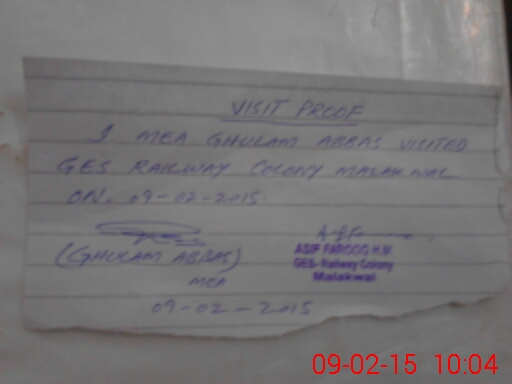 VISIT PROOF
I MEA GHULAM ABBAS VISITED
GES RAILWAY COLONY MALAKWAL
ON. 09-02-2015.
(GHULAM ABBAS)
MEA
09-02-2015
ASIF FAROOQ H.M
GES- Railway Colony
Malakwal
09-02-15 10:04